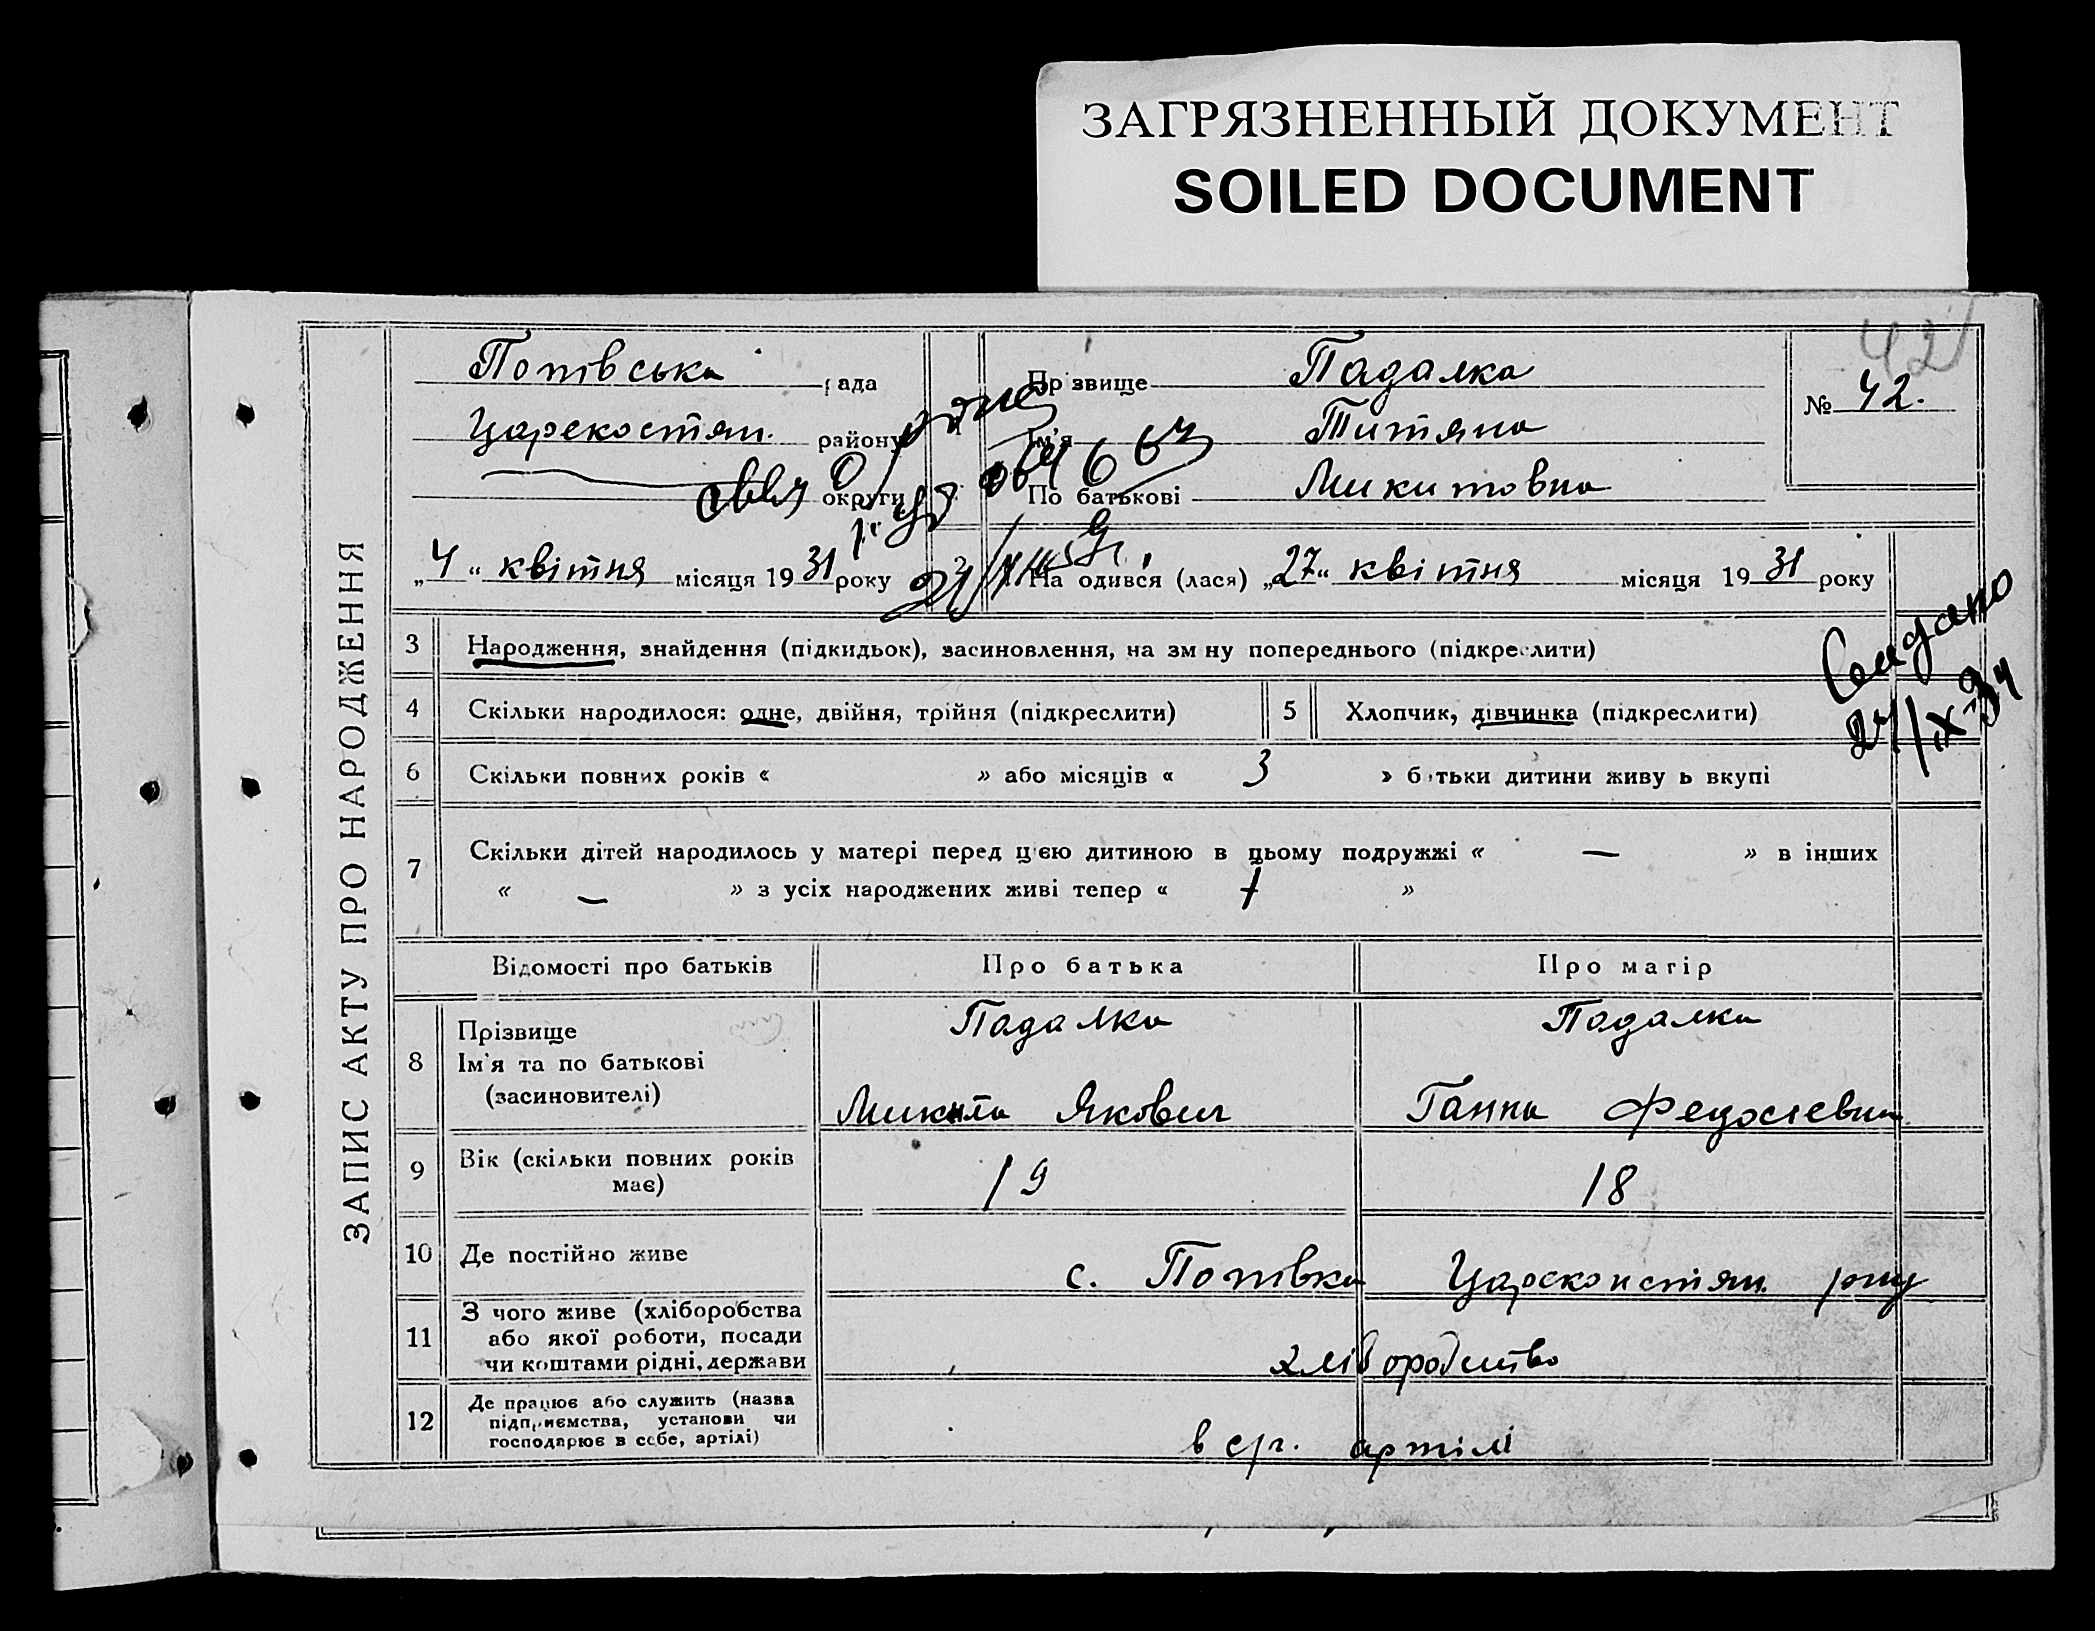 ЗАГРЯЗНЕННЫЙ ДОКУМЕНТ
SOILED DOCUMENT
42
ЗАПИС АКТУ ПРО НАРОДЖЕННЯ
Попівська рада
Царекостян. району
округи
Прізвище Падалка
Ім'я Титяна
По батькові Микитовна
№ 42.
„4“ квітня місяця 1931 року
2 На одився (лася) „27“ квітня місяця 1931 року
Сондано
24/IX-34
3 Народження, знайдення (підкидьок), засиновлення, на зм ну попереднього (підкреслити)
4 Скільки народилося: одне, двійня, трійня (підкреслити)
5 Хлопчик, дівчинка (підкреслити)
6 Скільки повних років « » або місяців « 3 » батьки дитини живу ь вкупі
7 Скільки дітей народилось у матері перед цією дитиною в цьому подружжі « — » в інших
« — » з усіх народжених живі тепер « 1 »
Відомості про батьків Про батька Про матір
8 Прізвище
Ім'я та по батькові
(засиновителі)
Падалка
Микита Якович
Падалка
Ганна Федосієвна
9 Вік (скільки повних років
має)
19 18
10 Де постійно живе
с. Попівка Царсконстян. рну
11 З чого живе (хліборобства
або якої роботи, посади
чи коштами рідні, держави
хліборобство
12 Де працює або служить (назва
підприємства, установи чи
господарює в себе, артілі)
в с/г. артілі